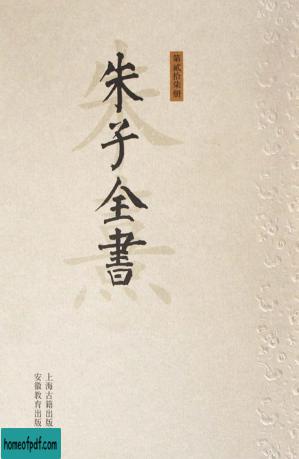 第貳拾柒册
朱子全書
朱熹
上海古籍出版
安徽教育出版
homeofpdf.com